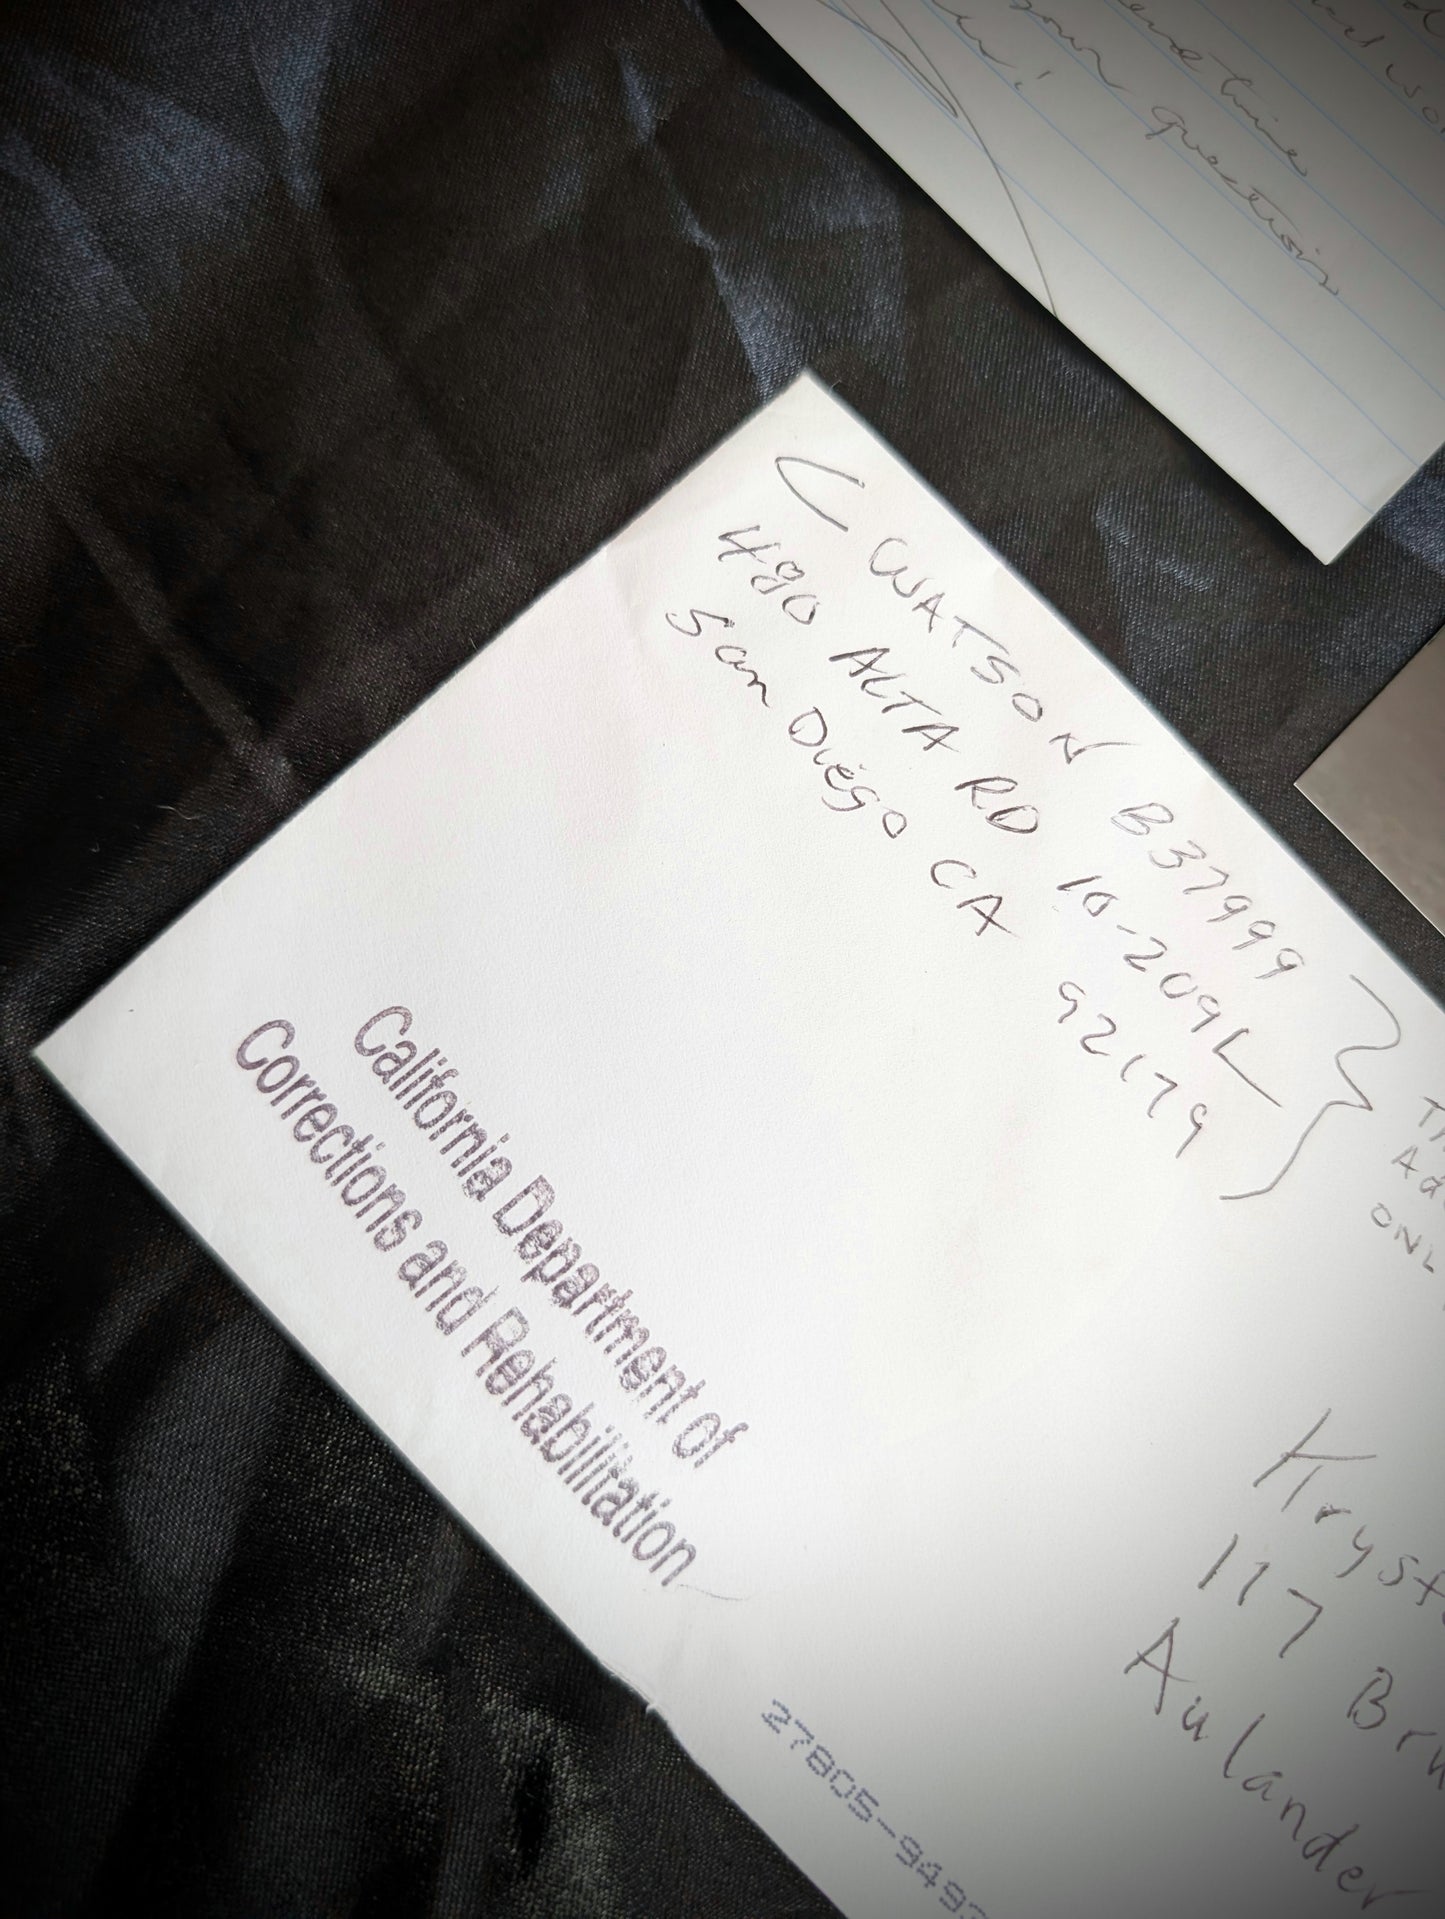 time
your question
WATSON B37999
480 ALTA RD 10-209L
San Diego CA 92179
ONL
California Department of
Corrections and Rehabilitation
Kryst
117 Bru
Aulander
27805-9493